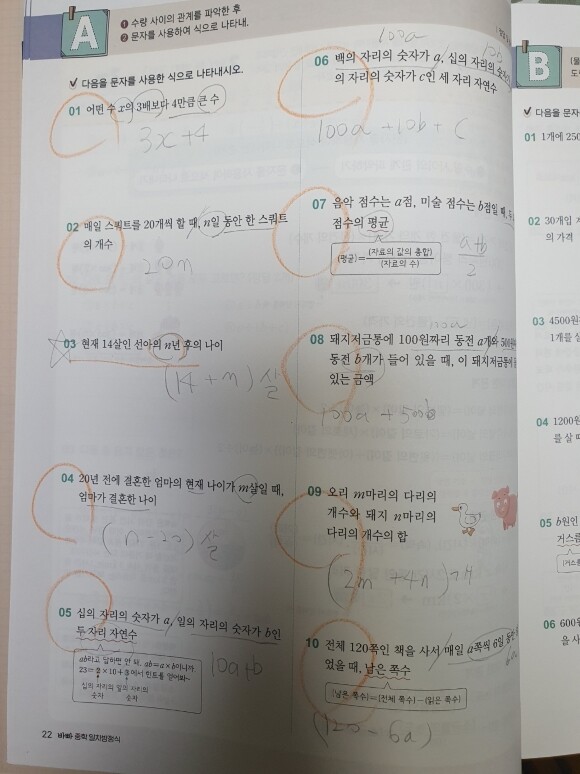 A
❶ 수량 사이의 관계를 파악한 후
❷ 문자를 사용하여 식으로 나타내.
✔ 다음을 문자를 사용한 식으로 나타내시오.
01 어떤 수 x의 3배보다 4만큼 큰 수
3x+4
02 매일 스쿼트를 20개씩 할 때, n일 동안 한 스쿼트
의 개수
20n
03 현재 14살인 선아의 n년 후의 나이
(14+n)살
04 20년 전에 결혼한 엄마의 현재 나이가 m살일 때,
엄마가 결혼한 나이
(n-20)살
05 십의 자리의 숫자가 a, 일의 자리의 숫자가 b인
두 자리 자연수
ab라고 답하면 안 돼. ab=a×b이니까
23=2×10+3에서 힌트를 얻어봐~
십의 자리의 숫자
일의 자리의 숫자
10a+b
22 바빠 중학 일차방정식
100a
06 백의 자리의 숫자가 a, 십의 자리의 숫자
의 자리의 숫자가 c인 세 자리 자연수
100a+10b+c
07 음악 점수는 a점, 미술 점수는 b점일 때, 두
점수의 평균
(평균)=(자료의 값의 총합)/(자료의 수)
a+b
2
08 돼지저금통에 100원짜리 동전 a개와 500원
동전 b개가 들어 있을 때, 이 돼지저금통에
있는 금액
100a+500b
09 오리 m마리의 다리의
개수와 돼지 n마리의
다리의 개수의 합
(2m+4n)개
10 전체 120쪽인 책을 사서 매일 a쪽씩 6일 동안
었을 때, 남은 쪽수
(남은 쪽수)=(전체 쪽수)-(읽은 쪽수)
(120-6a)
B
✔ 다음을 문자
01 1개에 250
02 30개입
의 가격
03 4500원
1개를
04 1200
를 살 때
05 b원인
거스름
06 600
을 사